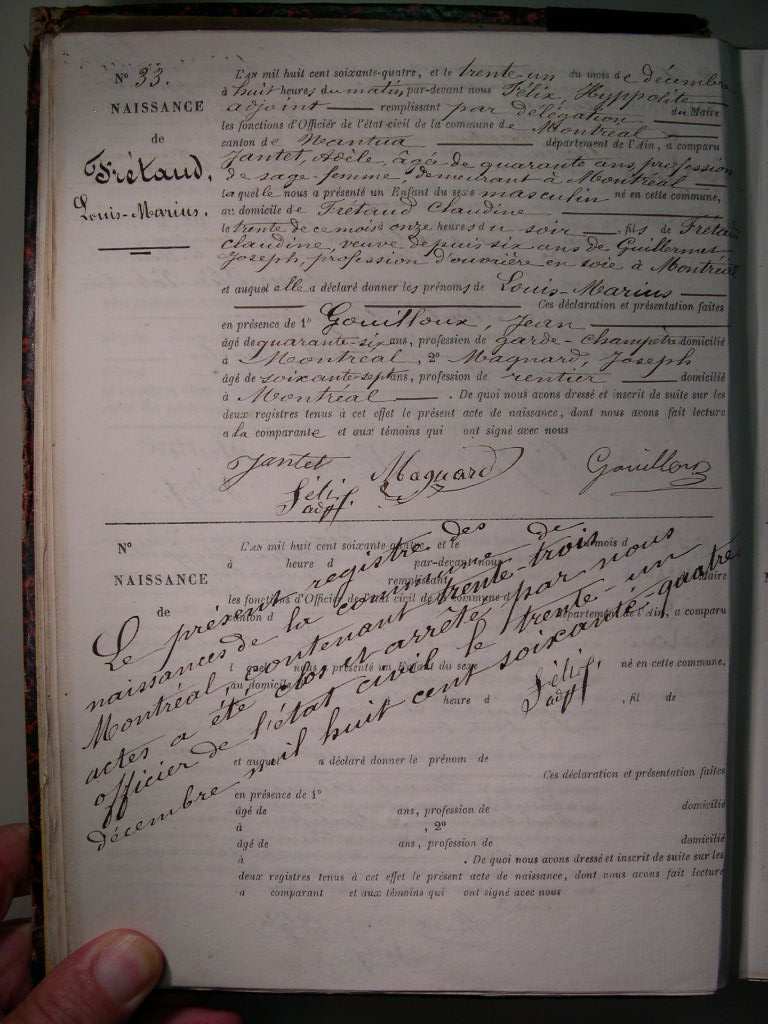 N° 33.
NAISSANCE
de
Frétaud,
Louis-Marius.
L'AN mil huit cent soixante-quatre, et le trente-un du mois de décembre
à huit heures du matin par-devant nous Félix Hyppolite
adjoint remplissant par délégation du Maire
les fonctions d'Officier de l'état-civil de la commune de Montréal
canton de Nantua département de l'Ain, a comparu
Jantet, Adèle, âgée de quarante ans, profession
de sage-femme, demeurant à Montréal
laquelle nous a présenté un Enfant du sexe masculin né en cette commune,
au domicile de Frétaud Claudine
le trente de ce mois à onze heures du soir, fils de Frétaud
Claudine, veuve depuis six ans de Guillermet
Joseph, profession d'ouvrière en soie à Montréal
et auquel elle a déclaré donner les prénoms de Louis-Marius
Ces déclaration et présentation faites
en présence de 1° Gouilloux, Jean
âgé de quarante-six ans, profession de garde-champêtre domicilié
à Montréal, 2° Magnard, Joseph
âgé de soixante-sept ans, profession de rentier domicilié
à Montréal. De quoi nous avons dressé et inscrit de suite sur les
deux registres tenus à cet effet le présent acte de naissance, dont nous avons fait lecture
a la comparante et aux témoins qui ont signé avec nous
Jantet Magnard Gouilloux
Félix
adjt.
N°
NAISSANCE
de
L'AN mil huit cent soixante-quatre, et le du mois d
à heure d par-devant nous
remplissant du Maire
les fonctions d'Officier de l'état civil de la commune d
canton d département de l'Ain, a comparu
l quel nous a présenté un Enfant du sexe né en cette commune,
au domicile
heure d , fil de
et auquel a déclaré donner le prénom de
Ces déclaration et présentation faites
en présence de 1°
âgé de ans, profession de domicilié
à , 2°
âgé de ans, profession de domicilié
à . De quoi nous avons dressé et inscrit de suite sur les
deux registres tenus à cet effet le présent acte de naissance, dont nous avons fait lecture
a comparant et aux témoins qui ont signé avec nous
Le présent registre des
naissances de la commune de
Montréal, contenant trente-trois
actes a été clos et arrêté, par nous
officier de l'état civil le trente-un
décembre mil huit cent soixante-quatre
Félix,
adjt.